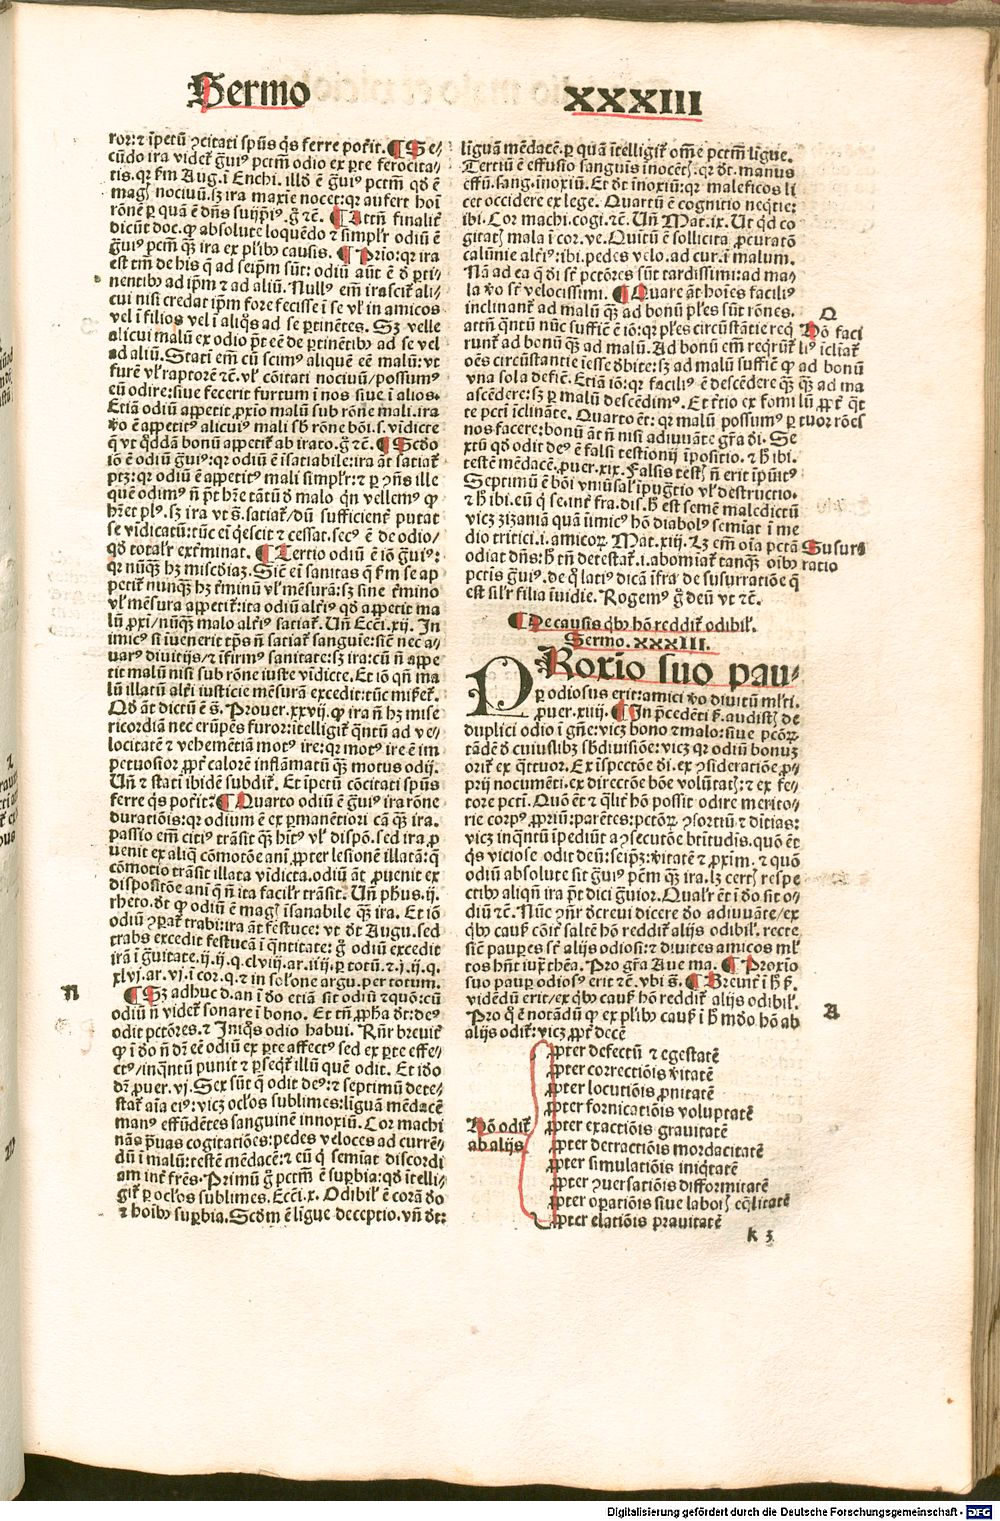 Sermo XXXIII
ror: ⁊ īpetū ꝯcitati spūs q̄s ferre poterit. ¶ Se-
cūdo ira videt̄ gͣuiꝰ pctm̄ odio ex ꝑte ferocita-
tis. qꝛ ẜm Aug. ī Enchi. illd̄ ē gͣuiꝰ pctm̄ qd̄ ē
magꝭ nociuū. sꝫ ira maxīe nocet: qꝛ aufert hoī
rōnē ꝑ quā ē dn̄s suijpsiꝰ. g̊ ⁊c̄. ¶ Attn̄ finalit̄
dicūt doc. ꝙ absolute loquēdo ⁊ simplr̄ odiū ē
gͣuiꝰ pctm̄ qꝫ ira ex plibꝰ causis. ¶ Prio: qꝛ ira
est tm̄ de his q̄ ad seipm̄ sūt: odiū aūt ē d̄ ꝑti-
nentibꝰ ad ip̄m ⁊ ad aliū. Nullꝰ em̄ irascit̄ ali-
cui nisi credat ip̄m fore fecisse ī se vl̓ in amicos
vel ī filios vel ī aliq̄s ad se ꝑtinētes. Sꝫ velle
alicui malū ex odio pōt eē de ꝑtinētibꝰ ad se vel
ad aliū. Statī em̄ cū scimꝰ aliquē eē malū: vt
furē vl̓ raptorē ⁊c̄. vl̓ cōitati nociuū/ possumꝰ
eū odire: siue fecerit furtum ī nos siue ī alios.
Etiā odiū appetit ꝓxio malū sub rōne mali. ira
v̓o ē appetitꝰ alicuiꝰ mali sb̄ rōne bōi. s. vīdicte
q̄ vt qd̄dā bonū appetit̄ ab irato. g̊ ⁊c̄. ¶ Scd̄o
iō ē odiū gͣuiꝰ: qꝛ odiū ē īsatiabile: ira āt satiat̄
ptꝫ: qꝛ odiū ē appetitꝰ mali simplr̄: ⁊ ꝑ ꝯn̄s ille
quē odimꝰ n̄ pt̄ hr̄e tātū d̄ malo qn̄ vellemꝰ ꝙ
hr̄et plꝰ. sꝫ ira vt s̄. satiat̄/ dū sufficient̄ putat
se vīdicatū: tūc ei q̄escit ⁊ cessat. secꝰ ē de odio/
qd̄ totalr̄ extīminat. ¶ Tertio odiū ē iō gͣuiꝰ:
qꝛ nūqꝫ hꝫ miscd̄iaꝫ. Sic̄ ei sanitas q̄ ẜm se ap-
petit̄ nunqꝫ hꝫ t̄minū vl̓ mēsurā: sꝫ sine t̄mino
vl̓ mēsura appetit̄: ita odiū alt̄iꝰ qd̄ appetit ma
lū ꝓxi/ nūqꝫ malo alt̄iꝰ satiat̄. Vn̄ Ecc̄i. xij. In
imicꝰ si īuenerit tp̄ꝰ n̄ satiat̄ sanguīe: sic̄ nec a-
varꝰ diuitijs/ ⁊ īfirmꝰ sanitate: sꝫ ira: cū n̄ appe
tit malū nisi sub rōne iuste vīdicte. Et iō qn̄ ma
lū illatū alt̄i iusticie mēsurā excedit: tūc miẜet̄.
Qd̄ āt dictū ē s̄. Prouer. xxvij. ꝙ ira n̄ hꝫ mise
ricordiā nec erūpēs furor: itelligit̄ qͣntū ad ve-
locitatē ⁊ vehemētiā motꝰ ire: qꝛ motꝰ ire ē im
petuosior ꝓpt̄ calorē inflāmatū qꝫ motus odij.
Vn̄ ⁊ stati ibidē subdit̄. Et īpetū cōcitati spūs
ferre q̄s poterit? ¶ Quarto odiū ē gͣuiꝰ ira rōne
durationis: qꝛ odium ē ex ꝑmanētiori cā qꝫ ira.
passio em̄ citiꝰ trāsit qꝫ hītꝰ vl̓ dispō. sed ira ꝓ
uenit ex aliq̄ cōmotōe ani ꝓpter lesionē illatā: q̄
cōmotio trāsit illata vīdicta. odiū āt ꝓuenit ex
dispositōe ani q̄ n̄ ita facilr̄ trāsit. Vn̄ ph̄us. ij.
rheto. dt̄ ꝙ odiū ē magꝭ īsanabile qꝫ ira. Et iō
odiū ꝯparat̄ trabi: ira āt festuce: vt dt̄ Augu. sed
trabs excedit festucā ī qͣntitate: g̊ odiū excedit
irā ī gͣuitate. ij. ij. q. clviij. ar. iiij. ꝑ totū. ⁊. j. ij. q.
xlvj. ar. vj. ī cor. q. ⁊ in solōne argu. per totum.
N
¶ Sꝫ adhuc d. an ī do etiā sit odiū ⁊ quō: cū
odiū n̄ videt̄ sonare ī bono. Et tn̄ ꝓpha dt̄: deꝰ
odit pctōres. ⁊ Iniq̄s odio habui. Rn̄r breuit̄
ꝙ ī do n̄ dr̄ eē odiū ex ꝑte affectꝰ sed ex ꝑte effe-
ctꝰ/ inqͣntū punit ⁊ ꝑseqt̄ illū quē odit. Et ido
dr̄ ꝓuer. vj. Sex sūt q̄ odit deꝰ: ⁊ septimū dete-
stat̄ aīa eiꝰ: vicꝫ oclos sublimes: līguā mēdacē
manꝰ effūdētes sanguinē innoxiū. Cor machi
nās ꝑuas cogitatiōes: pedes veloces ad currē-
dū ī malū: testē mēdacē: ⁊ eū q̄ semīat discordi
am int̄ fr̄es. Primū g̊ pctm̄ ē suꝑbia: qd̄ itelli-
git̄ ꝑ oclos sublimes. Ecc̄i. x. Odibil̓ ē corā do
⁊ hoībꝰ suꝑbia. Scd̄m ē līgue deceptio. vn̄ dt̄:
līguā mēdacē. ꝑ quā itelligit̄ om̄e pctm̄ līgue.
Tertiū ē effusio sanguīs inocētꝭ. qꝛ dt̄. manus
effū. sang. inoxiū. Et dt̄ inoxiū: qꝛ maleficos li
cet occidere ex lege. Quartū ē cognitio neqͣtie:
ibi. Cor machi. cogi. ⁊c̄. Vn̄ Mat. ix. Vt qd̄ co
gitatꝭ mala ī cor. ve. Quītū ē sollicita ꝓcuratō
calūnie alt̄iꝰ: ibi. pedes velo. ad cur. ī malum.
Nā ad ea q̄ di st̄ pctōres sūt tardissimi: ad ma/
la v̓o st̄ velocissimi. ¶ Quare āt hoīes faciliꝰ
inclinant̄ ad malū qꝫ ad bonū ples sūt rōnes.
O
Hō faci
liꝰ īcliat̄
qꝫ ad ma
lū ꝓpt̄ qͣt
tuor rōes
attn̄ qͣntū nūc suffic̄ ē iō: qꝛ ples circūstātie req
runt̄ ad bonū qꝫ ad malū. Ad bonū em̄ reqrūt̄
oēs circūstantie iesse dbite: sꝫ ad malū suffic̄ ꝙ ad bonū
vna sola defic̄. Etiā iō: qꝛ faciliꝰ ē descēdere qꝫ
ascēdere: sꝫ ꝑ malū descēdimꝰ. Et t̄tio ex fomi
te pcti īclināte. Quarto ēt: qꝛ malū possumꝰ ꝑ
nos facere: bonū āt n̄ nisi adiuuāte gr̄a di. Se
xtū qd̄ odit deꝰ ē falsi testionij īpositio. ⁊ h̄ ibi.
testē mēdacē. ꝓuer. xix. Falsis testꝭ n̄ erit īpūitꝰ
Septimū ē bōi vniūsal̓ īpugͣtio vl̓ destructio.
⁊ h̄ ibi. eū q̄ se. int̄ fra. dis. h̄ est semē maledictū
vicꝫ zizaniā quā iimicꝰ hō diabolꝰ semīat ī me
dio tritici. i. amicoꝝ. Mat. xiij. Lꝫ em̄ oīa pctā
Susur
ratio
odiat dn̄s: h̄ tn̄ detestat̄. i. abomiat̄ tanqꝫ oībꝰ
pctis gͣuiꝰ. de q̄ latiꝰ dicā īfra de susurratiōe q̄
est silr̄ filia īuidie. Rogemꝰ g̊ deū vt ⁊c̄.
¶ De causis qͥbꝰ hō reddit̄ odibil̓.
Sermo. XXXIII.
PRoxīo suo pau-
ꝑ odiosus erit: amici v̓o diuitū ml̓ti.
ꝓuer. xiiij. ¶ In p̄cedēti ẜ. audistꝭ de
duplici odio ī gn̄e: vicꝫ bono ⁊ malo: n̄ue pcōꝝ
tādē d̄ cuiuslibꝫ sb̄diuisiōe: vicꝫ qꝛ odiū bonuꝫ
orit̄ ex qͣttuor. Ex īspectōe di. ex ꝯsideratiōe ꝓ-
prij nocumēti. ex directōe bōe volūtatꝭ: ⁊ ex fe-
tore pcti. Quō ēt ⁊ qͣlit̄ hō possit odire merito-
rie corpꝰ ꝓpriū: parētes: pctōꝝ ꝯsortiū ⁊ diuitias:
vicꝫ inqͣntū īpediūt a ꝯsecutōe btītudis. quō ēt
q̄s viciose odit deū: seipꝫ: v̓itatē ⁊ ꝓxim. ⁊ quō
odiū absolute sit gͣuiꝰ pēm qꝫ ira. lꝫ certꝭ respe
ctibꝰ aliqn̄ ira pt̄ dici gͣuior. Qualr̄ ēt ī do sit o-
diū ⁊c̄. Nūc ꝯn̄r dcreui dicere do adiuuāte/ ex
qͥbꝰ cauẜ cōit̄ saltē hō reddit̄ alijs odibil̓. recte
sic̄ pauꝑes st̄ alijs odiosi: ⁊ diuites amicos ml̓
tos hn̄t iuxͣ thēa. Pro gr̄a Aue ma. ¶ Proxīo
suo pauꝑ odiosꝰ erit ⁊c̄. vbi s̄. ¶ Breuit̄ ī h̄ ẜ.
vidēdū erit/ ex qͥbꝰ cauẜ hō reddit̄ alijs odibil̓.
A
Pro q̊ ē notādū ꝙ ex plibꝰ cauẜ ī h̄ mūdo hō ab
alijs odit̄: vicꝫ ꝓpt̄ decē
Hō odit̄
ab alijs
ꝓpter defectū ⁊ egestatē
ꝓpter correctiōis v̓itatē
ꝓpter locutiōis ꝓnitatē
ꝓpter fornicatiōis voluptatē
ꝓpter exactiōis grauitatē
ꝓpter detractiōis mordacitatē
ꝓpter simulatiōis iniqͣtatē
ꝓpter ꝯuersatiōis difformitatē
ꝓpter oꝑatiōis siue laboꝭ eq̄litatē
ꝓpter elatiōis prauitatē
k 3
Digitalisierung gefördert durch die Deutsche Forschungsgemeinschaft - DFG